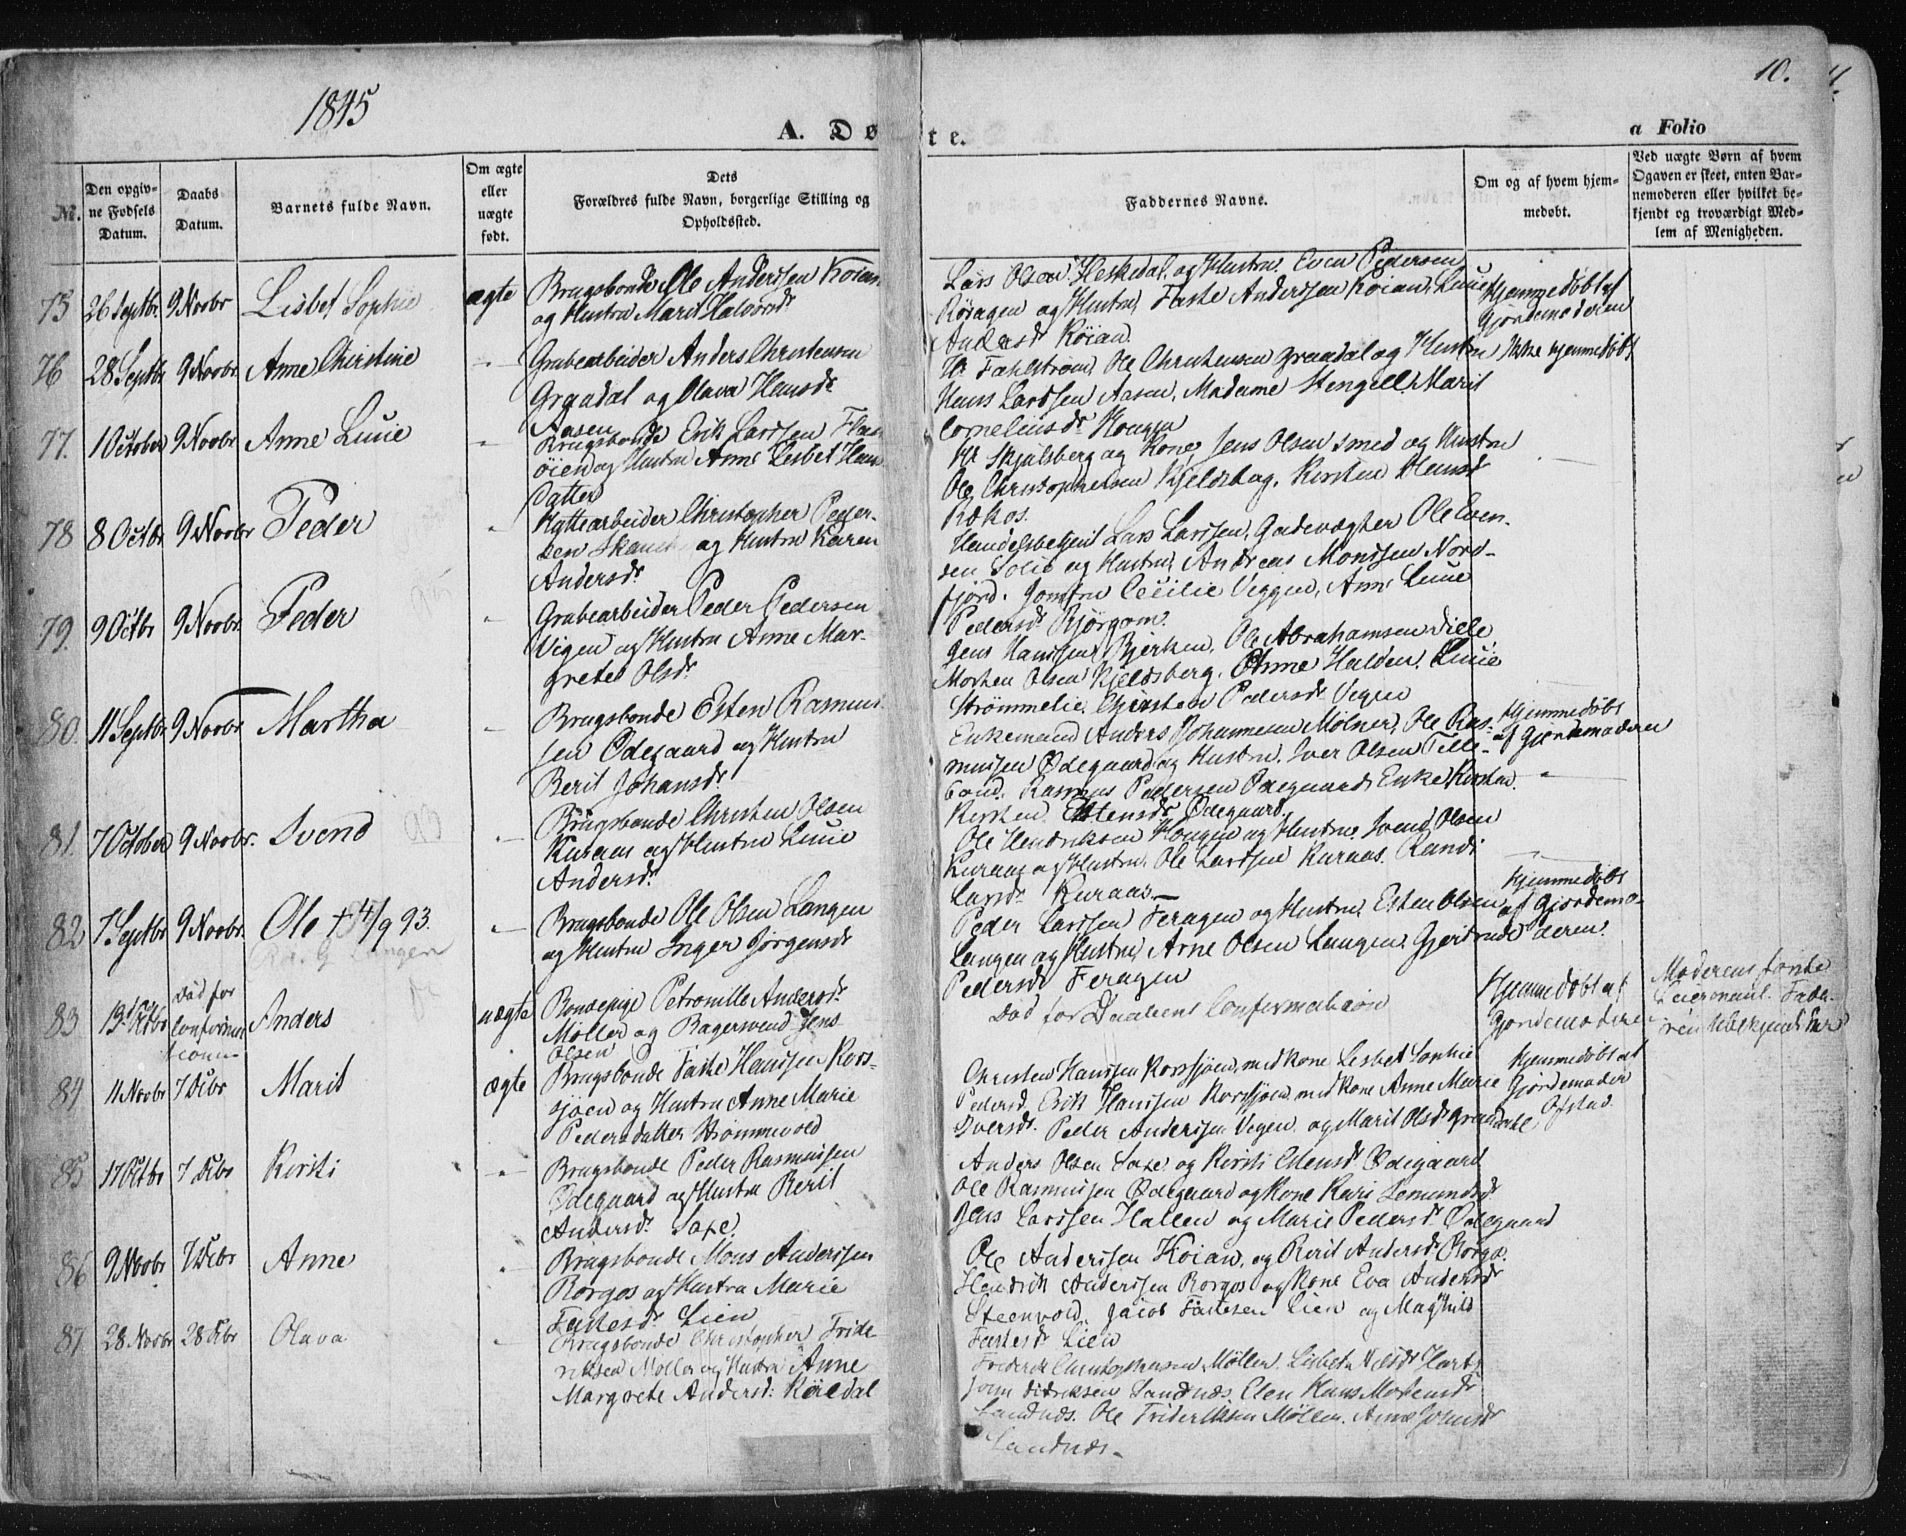 1845
10.
A. Dø te.
a Folio
№.
Den opgiv-
ne Fødsels
Datum.
Daabs
Datum.
Barnets fulde Navn.
Om ægte
eller
uægte
født.
Dets
Forældres fulde Navn, borgerlige Stilling og
Opholdssted.
Faddernes Navne.
Om og af hvem hjem-
medøbt.
Ved uægte Børn af hvem
Opgaven er skeet, enten Bar-
nemoderen eller hvilket be-
kjendt og troværdigt Med-
lem af Menigheden.
75 26 Septbr. 9 Novbr Lisbet Sophie ægte
Brugsbonde Ole Anderssen Koian
og Hustru Marit Halvorsdr
Lars Olsen Heskedal og Hustru. Even Pedersen
og Hustru, Faste Anderssen Koian, Lucie
Andersdr Koian.
Hjemmedøbt af
Gjordemoderen
76 28 Septbr 9 Novbr. Anne Christine "
Grubearbeider Anders Christensen
Graadal og Olava Hansdr
Aasen
Hr Fahlstrøm, Ole Christensen Graadal og Hustru
Hans Larssen Aasen, Madame Stengell. Marit
Corneliusdr Hougen
Ikke hjemmedøbt
77. 1 October 9 Novbr Anne Lucie "
Brugsbonde Erik Larssen
øien og Hustru Anne Lisbet Hans
Datter
Hr Skjulsberg og Kone, Jens Olsen Smed og Hustru
Ole Christophersen Kjeldsberg, Kirsten Olausdr
78 8 Octbr. 9 Novbr Peder "
Hyttearbeider Christopher Peder-
sen Skanck og Hustru Karen
Andersdr
Handelsbetjent Lars Larssen, Gadevægter Ole Even-
sen Solie og Hustru, Andreas Monssen Nord-
fjord. Jomfru Cecilie Veggen, Anne Lucie
Pedersdr
79. 9 Octbr 9 Novbr. Peder "
Grubearbeider Peder Pedersen
Vigen og Hustru Anne Mar-
grete Olsdr
Jens Hanssen Bjerken, Ole Abrahamsen
Morten Olsen Kjeldsberg. Anne Halden. Lucie
Strømmelie. Christen Pedersdr Vegen
80. 11 Septbr 9 Novbr Martha "
Brugsbonde Esten Rasmus
sen Ødegaard og Hustru
Berit Johansdr
Enkemand Anders Johannesen Mølner, Ole Ras-
mussen Ødegaard og Hustru. Iver Olsen
Rasmus Pedersen Ødegaard, Enke Kirsten
Kirsten Estensdr Ødegaard.
Hjemmedøbt
af Gjordemoderen
81. 7 October 9 Novbr. Svend "
Brugsbonde Christen Olsen
Kuraas og Hustru Lucie
Andersdr.
Ole Hendriksen Hougen og Hustru. Svend Olsen
Kuraas og Hustru, Ole Larssen Kuraas. Randi
Larsdr Kuraas.
82 7 Septbr 9 Novbr. Ole + 4/9 93.
Langen
Brugsbonde Ole Olsen Langen
og Hustru Inger Jørgensdr
Peder Larssen Feragen og Hustru, Esten Olsen
Langen og Hustru, Arne Olsen Langen, Gjertrude
Pedersdr Feragen
Hjemmedøbt
af Gjordemo-
deren.
83 13de Octbr Død før
Confirma-
tionen
Anders uægte
Bondepige Petronille Andersdr
Møller og Bagersvend Jens
Olsen
Død før Daabens Confirmation
Hjemmedøbt af
Gjordemoderen
Moderens første
Leiermaal. Fade-
ren
84 11 Novbr 7 Dcbr Marit ægte
Brugsbonde Faste Hanssen Kors-
sjøen og Hustru Anne Marie
Pedersdatter Strømmevold
Christen Hanssen Korssjøen, med Kone Lisbet Sophie
Pedersd. Erik Hanssen Korssjøen med Kone Anne Marie
Iversdr. Peder Anderssen Vegen og Marit Olsdr Graadahl
Hjemmedøbt af
Gjordemoder
Ofstad.
85 17 Octbr 7 Dcbr Kirsti "
Brugsbonde Peder Rasmussen
Ødegaard og Hustru Berit
Andersdr. Saxe.
Anders Olsen Saxe. og Kirsti Estensdr Ødegaard
Ole Rasmussen Ødegaard og Kone Kari Semundsdr
Jens Larssen Hallen og Marie Pedersdr Ødegaard
86 9 Novbr 7 Dcbr Anne "
Brugsbonde Mons Anderssen
Borgos og Hustru Marie
Fastesdr. Lien
Ole Anderssen Koian, og Berit Andersdr Borgos.
Hendrik Anderssen Borgos og Kone Eva Andersdr
Steenvold. Jacob Fastesen Lien og Magnild
Fastesdr Lien
87 28 Novbr 28 Dcbr Olava "
Brugsbonde Christopher Fride-
riksen Møller og Hustru Anne
Margrete Andersd: Røisdal
Frederik Christophersen Møller. Lisbet
Jonn Didriksen Sandnæs, Elen Hans
Sandnæs. Ole Frideriksen Møller. Anne Jonsdr
Sandnæs.